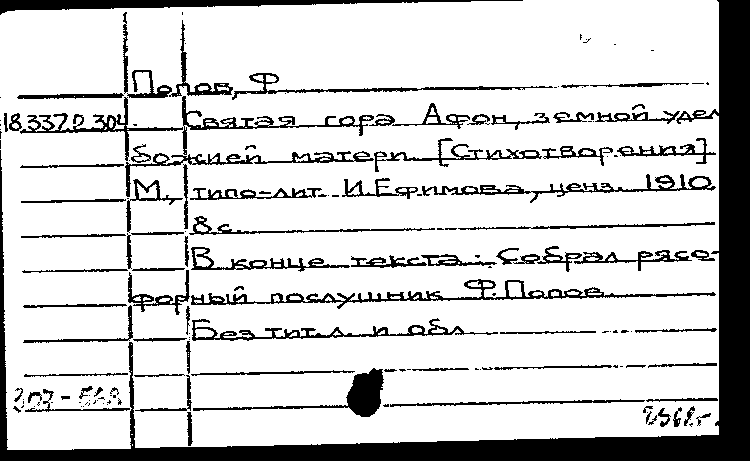 Попов, Ф
18.337.2.304. Святая гора Афон, земной удел
божией матери. [Стихотворения]
М., типо-лит. И.Ефимова, ценз. 1910.
8с.
В конце текста: Собрал рясо-
форный послушник Ф.Попов.
Без тит.л. и обл.